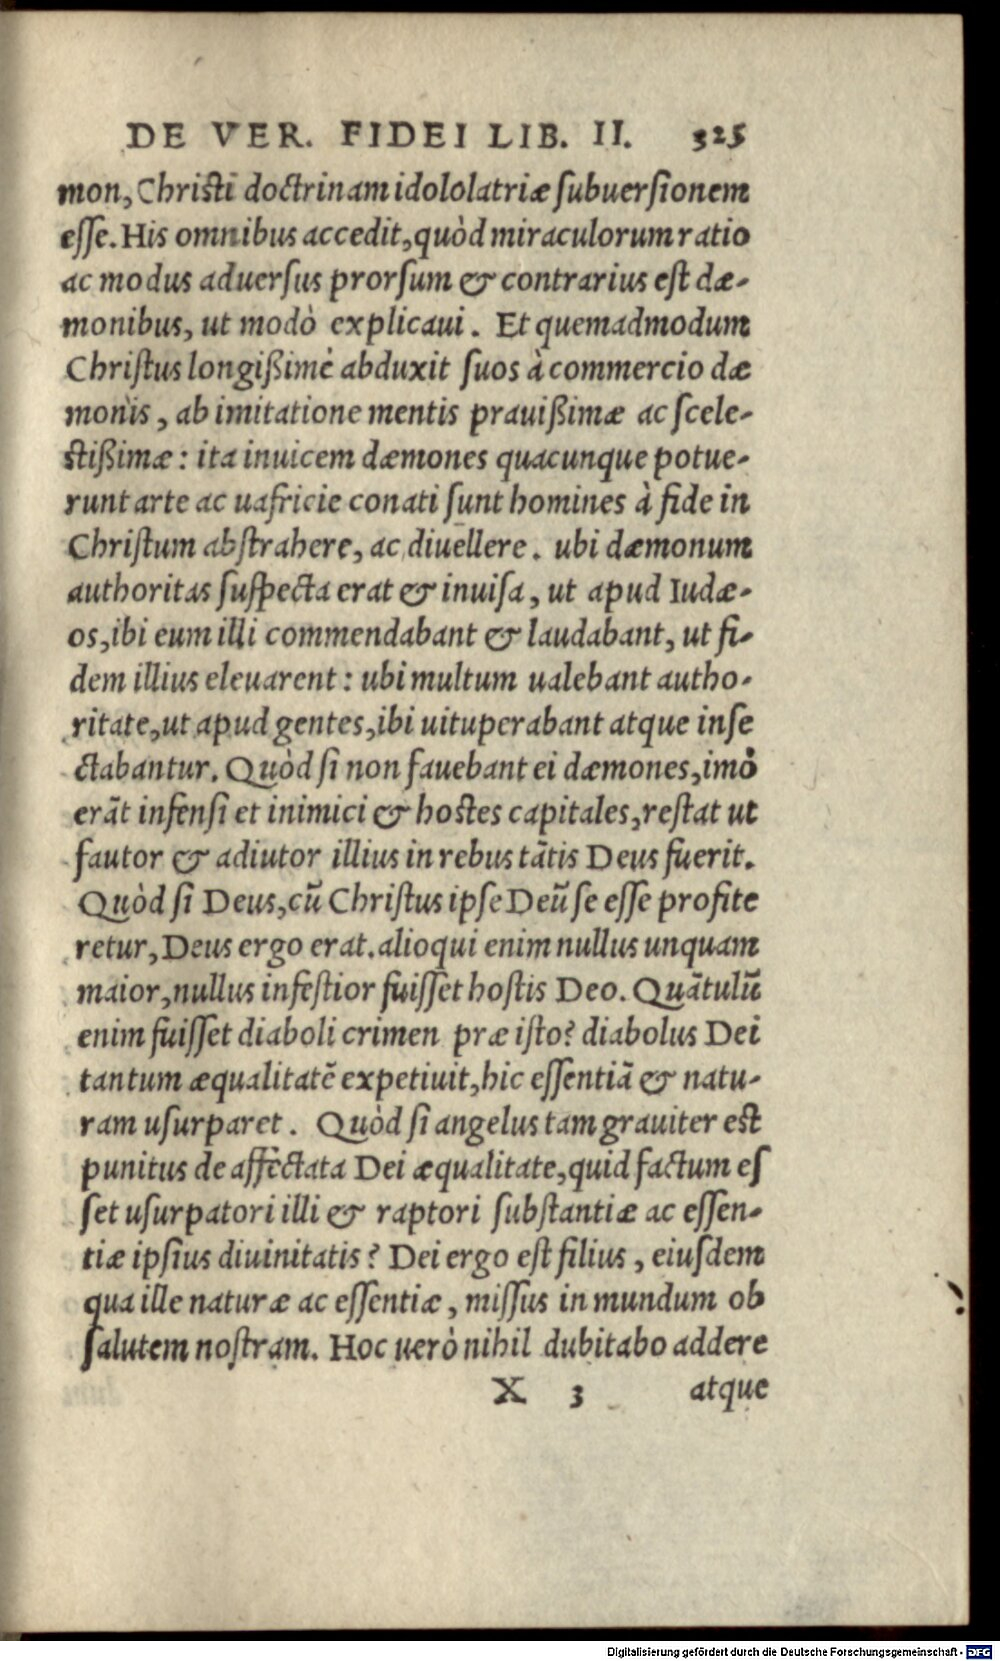 DE VER. FIDEI LIB. II. 325
mon, Christi doctrinam idololatriæ subuersionem
esse. His omnibus accedit, quòd miraculorum ratio
ac modus aduersus prorsum & contrarius est dæ-
monibus, ut modò explicaui. Et quemadmodum
Christus longißimè abduxit suos à commercio dæ
monis, ab imitatione mentis prauißimæ ac scele-
stißimæ: ita inuicem dæmones quacunque potue-
runt arte ac uafricie conati sunt homines à fide in
Christum abstrahere, ac diuellere. ubi dæmonum
authoritas suspecta erat & inuisa, ut apud Iudæ-
os, ibi eum illi commendabant & laudabant, ut fi-
dem illius eleuarent: ubi multum ualebant autho-
ritate, ut apud gentes, ibi uituperabant atque inse
ctabantur. Quòd si non fauebant ei dæmones, imò
erãt infensi et inimici & hostes capitales, restat ut
fautor & adiutor illius in rebus tãtis Deus fuerit.
Quòd si Deus, cũ Christus ipse Deũ se esse profite
retur, Deus ergo erat. alioqui enim nullus unquam
maior, nullus infestior fuisset hostis Deo. Quãtulũ
enim fuisset diaboli crimen præ isto? diabolus Dei
tantum æqualitatẽ expetiuit, hic essentiã & natu-
ram usurparet. Quòd si angelus tam grauiter est
punitus de affectata Dei æqualitate, quid factum es
set usurpatori illi & raptori substantiæ ac essen-
tiæ ipsius diuinitatis? Dei ergo est filius, eiusdem
qua ille naturæ ac essentiæ, missus in mundum ob
salutem nostram. Hoc uerò nihil dubitabo addere
X 3 atque
Digitalisierung gefördert durch die Deutsche Forschungsgemeinschaft - DFG